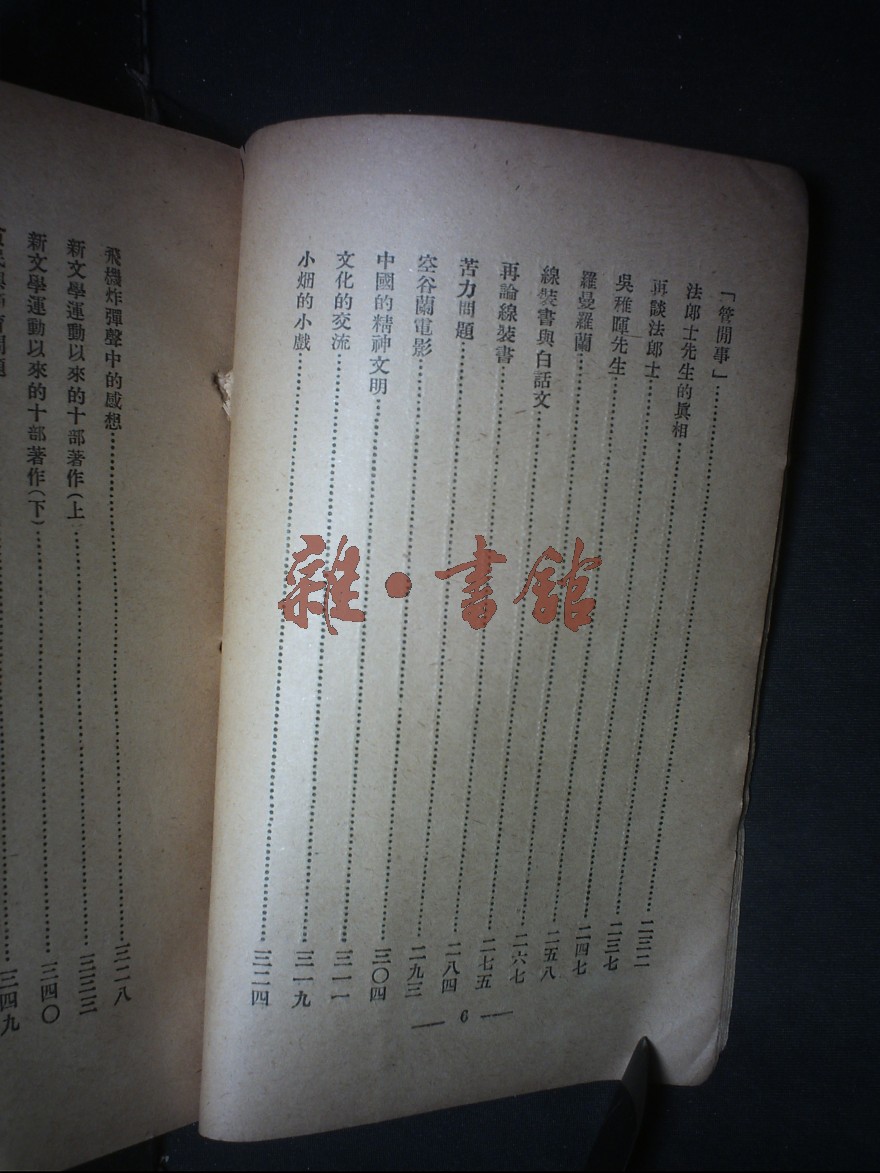 「管閒事」……二三二
法郎士先生的眞相……二三七
再談法郎士……二四七
吳稚暉先生……二五八
羅曼羅蘭……二六七
線裝書與白話文……二七五
再論線裝書……二八四
苦力問題……二九三
空谷蘭電影……三〇四
中國的精神文明……三一一
文化的交流……三一九
小畑的小戲……三二四
— 6 —
飛機炸彈聲中的感想……三二八
新文學運動以來的十部著作(上……三三三
新文學運動以來的十部著作(下)……三四〇
問題……三四九
雜·書館